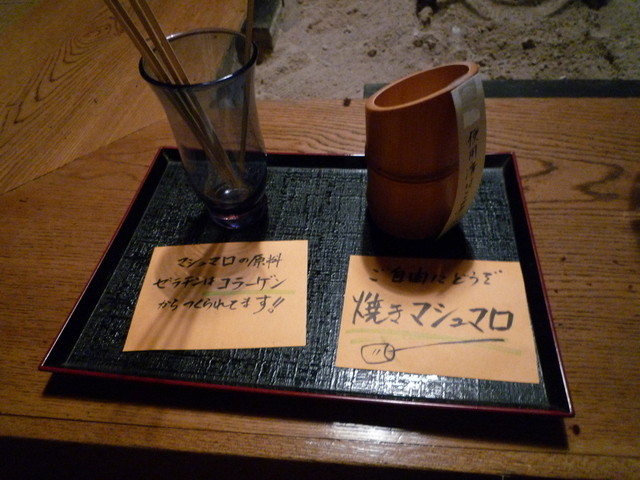 マシュマロの原料
ゼラチンはコラーゲン
からつくられてます!!
ご自由にどうぞ
焼きマシュマロ